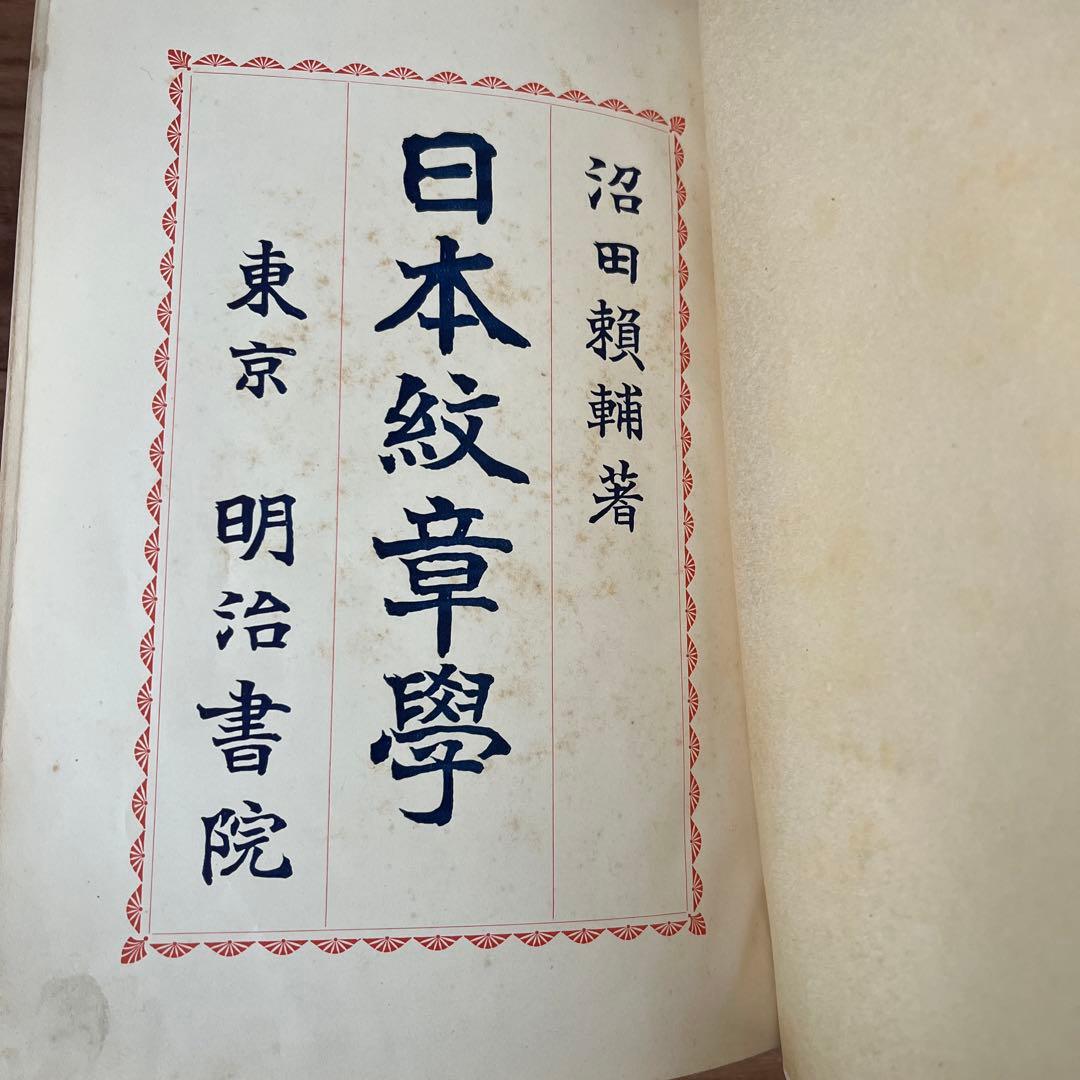 沼田賴輔著
日本紋章學
東京 明治書院